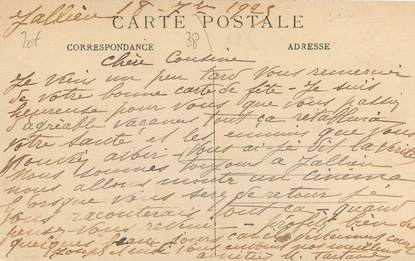 Jallieu 18 - 7bre 1925
CARTE POSTALE
CORRESPONDANCE
ADRESSE
38
Chère Cousine
Je viens un peu tard vous remercier
de votre bonne carte de fête - Je suis
heureuse pour vous que vous passiez
d'agréable vacances tout ça rétablira
votre santé et les ennuis que vous
pouvez avoir - vous ai-je dit la vérité
Nous sommes toujours à Jallieu
nous allons monter un cinéma
lorsque vous serez de retour je
vous raconterais tout ça - quand
pensez-vous revenir - profitez bien des
quelques beaux jours car
vous envoyons nos meilleures
amitiés